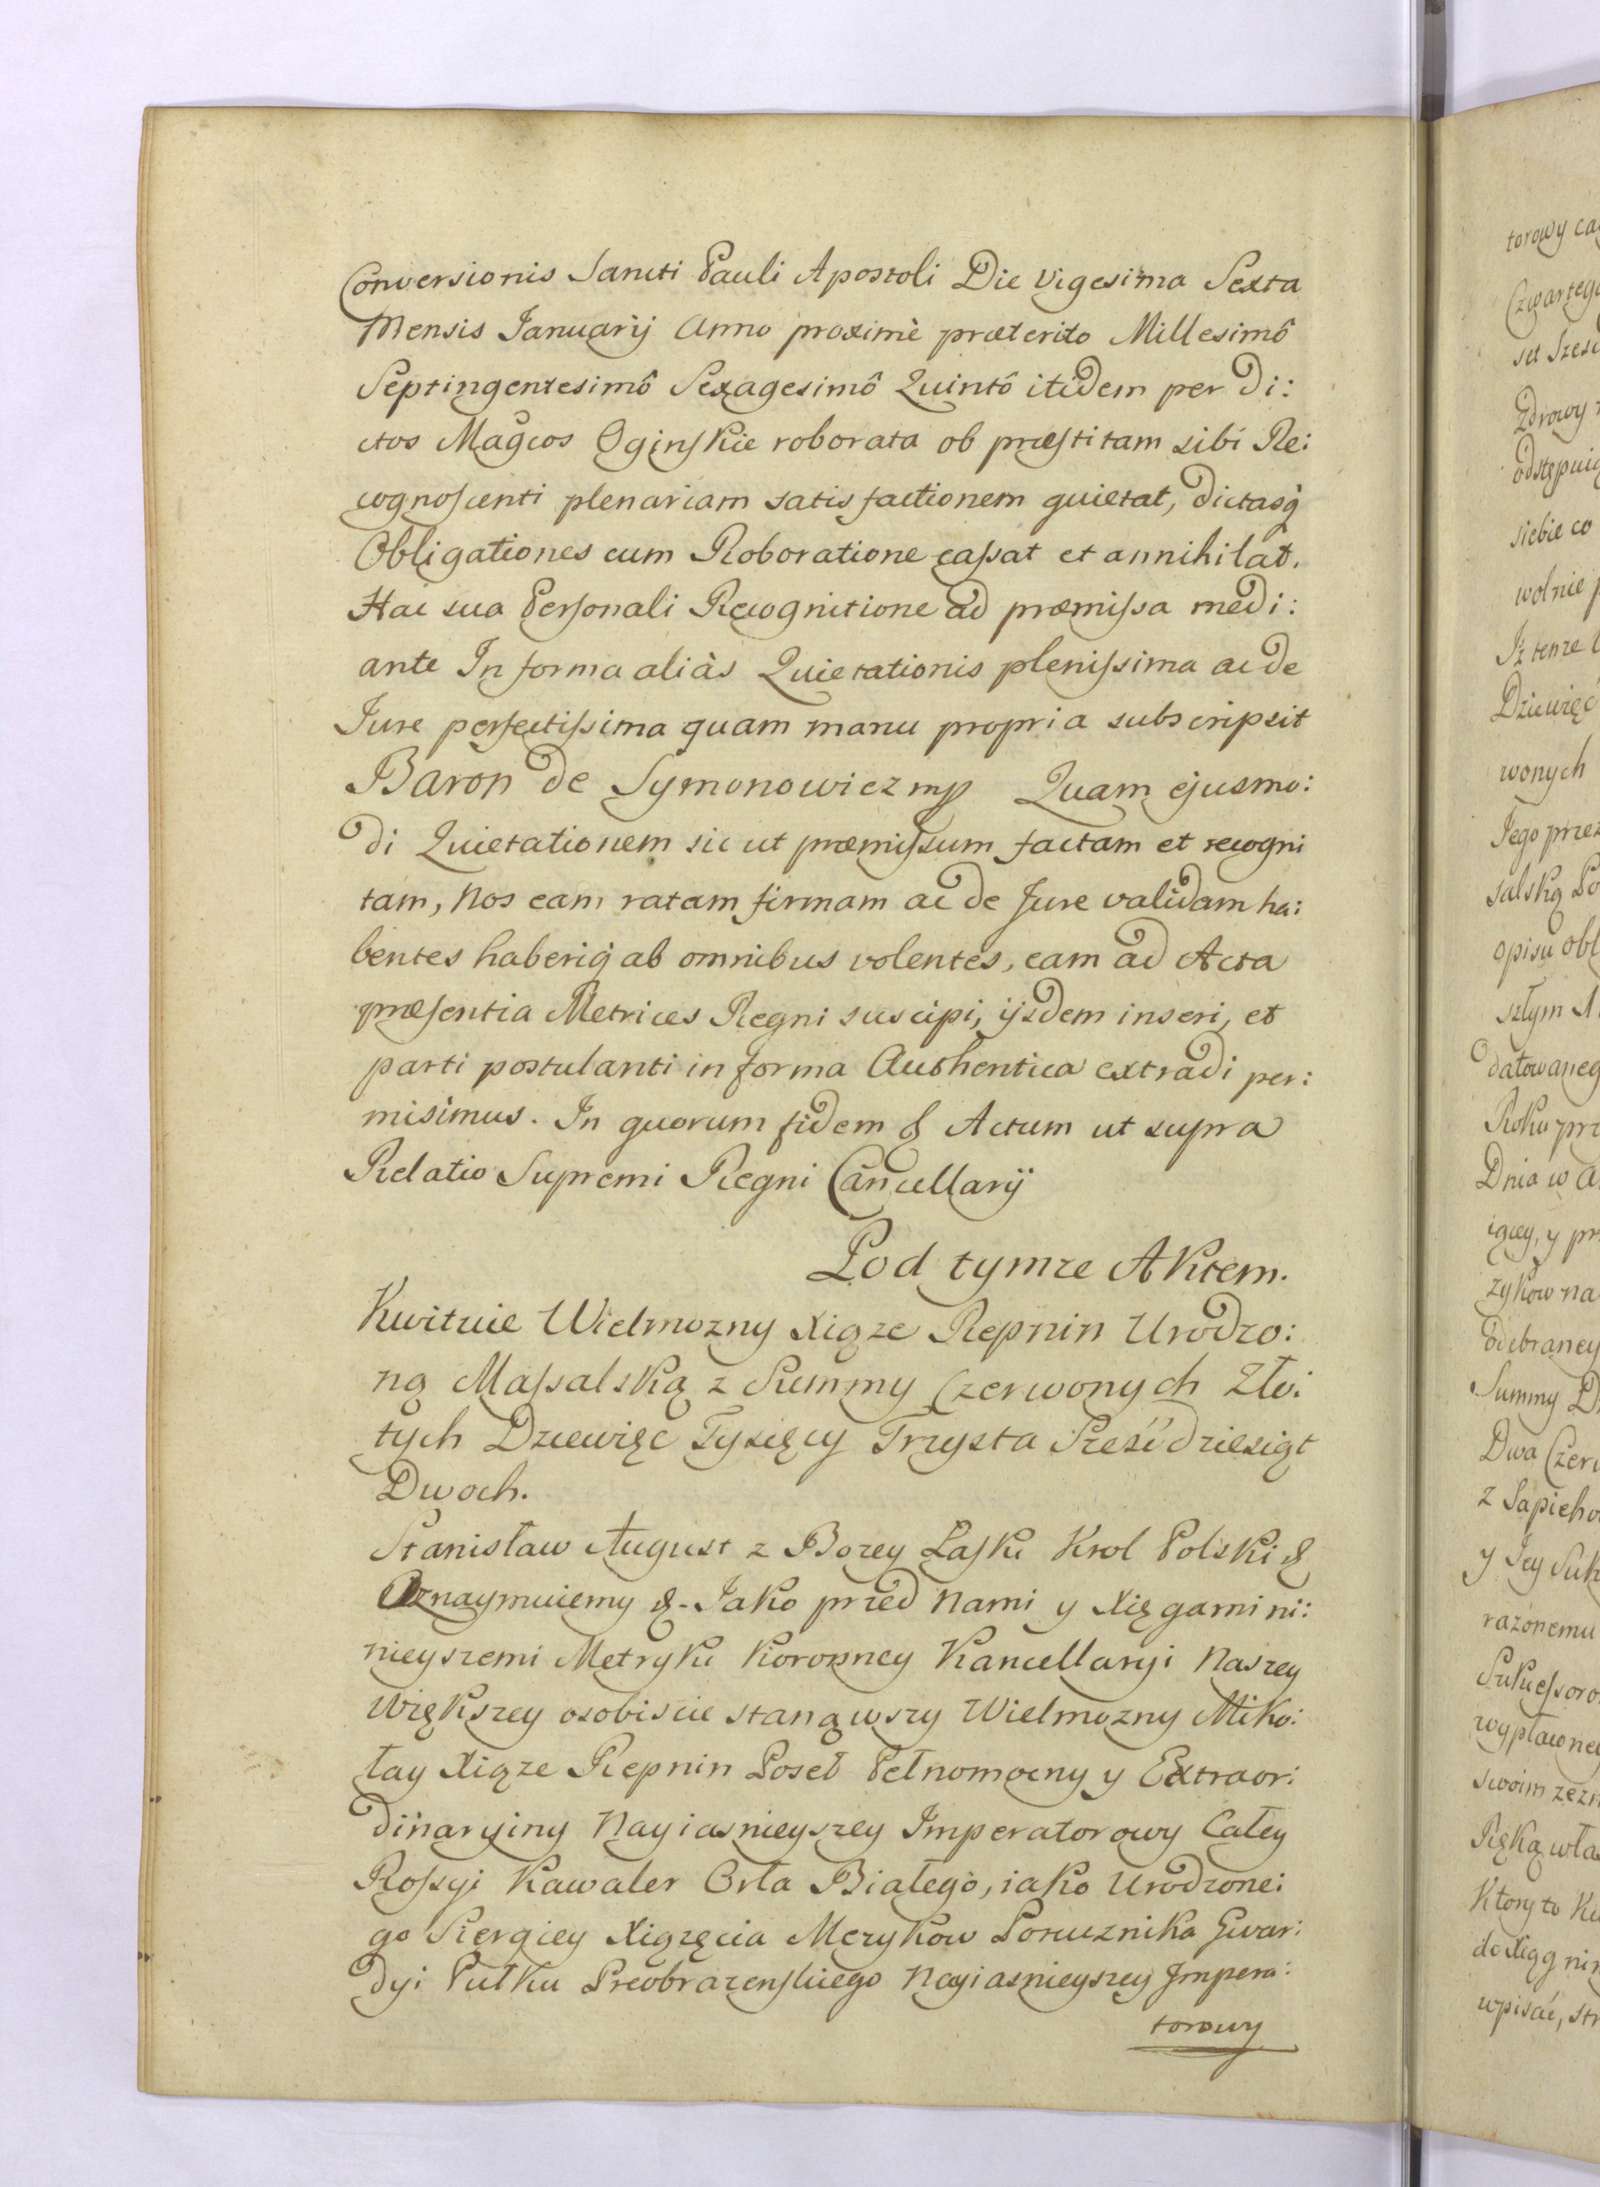 Conversionis Sancti Pauli Apostoli Die Vigesima Sexta
Mensis Januarij Anno proximè præterito Millesimô
Septingentesimô Sexagesimô Quintô itidem per di:
ctos Magcos Oginskie roborata ob præstitam sibi Re:
cognoscenti plenariam satisfactionem quietat, dictasq̀
Obligationes cum Roboratione cassat et annihilat.
Hac sua Personali Recognitione ad præmissa medi:
ante In forma aliàs Quietationis plenissima ac de
Jure perfectissima quam manu propria subscripsit
Baron de Symonowicz mp Quam ejusmo:
di Quietationem sic ut præmissum factam et recogni
tam, Nos eam ratam firmam ac de Jure validam ha:
bentes haberiq̀ ab omnibus volentes, eam ad Acta
præsentia Metrices Regni suscipi, ijsdem inseri, et
parti postulanti in forma Authentica extradi per:
misimus. In quorum fidem & Actum ut supra
Relatio Supremi Regni Cancellarij
Pod tymze Aktem.
Kwituie Wielmozny Xiąze Repnin Urodzo:
ną Massalską z Summy Czerwonych Zło:
tych Dziewięc Tysięcy Trzysta Sześćdziesiąt
Dwoch.
Stanisław August z Bozey Łaski Krol Polski &
Oznaymuiemy &. Jako przed Nami y Xięgami ni:
nieyszemi Metryki Koronney Kancellaryi Naszey
Większey osobiscie stanąwszy Wielmozny Miko:
łay Xiąze Repnin Poseł Pełnomocny y Extraor:
dinaryiny Nayiasnieyszey Imperatorowy Całey
Rossyi Kawaler Orła Białego, iako Urodzone:
go Siergiey Xiązęcia Mezykow Porucznika Gwar:
dyi Pułku Preobrazenskiego Nayiasnieyszey Impera:
torowy
torowy
Czwartego
Zdrowy
siebie co
wolnie
Iz tenze
Dziewięć
wonych
Jego przez
salską
opisu Obl
szłym
datowaneg
Roku
Dnia w
iącey, y
zykow na
odebraney
Summy
Dwa Czer
z Sapieho
y Jey
razonemu
Sukcessoro
swoim zezn
Ręką wła
Ktory to
do Xiąg nin
wpisać,